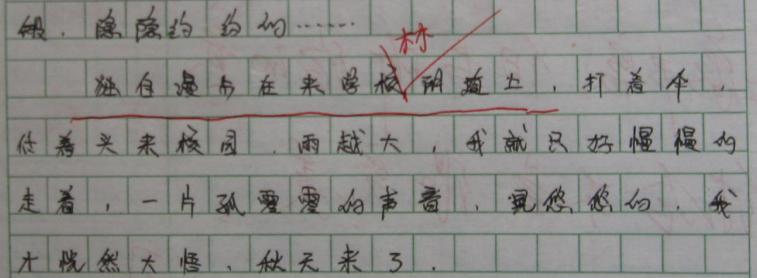 般，隐隐约约的……
林
独自漫步在来学校阴道上，打着伞，
低着头来校园，雨越大，我就只好慢慢的
走着，一片孤零零的声音，悠悠的，我
才恍然大悟，秋天来了．